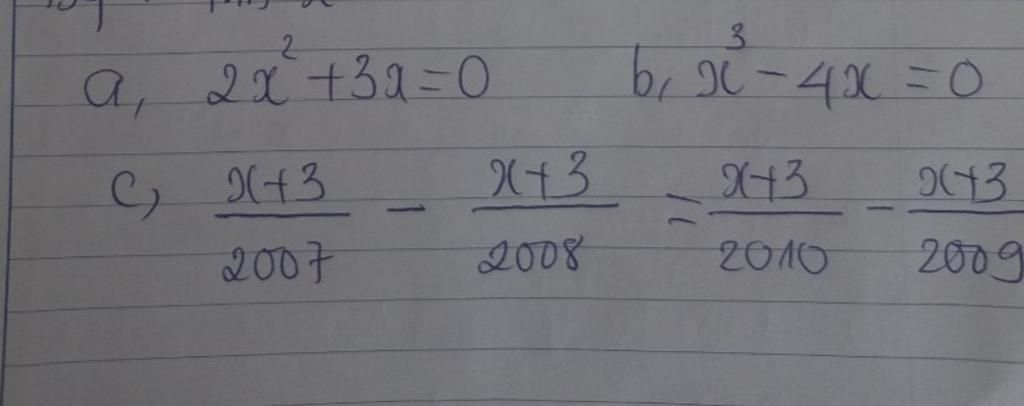 a, 2x² + 3x = 0 b, x³ - 4x = 0
c, \frac{x+3}{2007} - \frac{x+3}{2008} = \frac{x+3}{2010} - \frac{x+3}{2009}